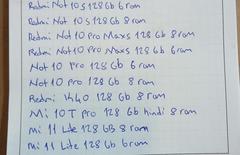 Redmi Not 10 s 128 Gb 6 ram
Redmi Not 10 s 128 Gb 8 ram
Redmi Not 10 Pro Maxs 128 Gb 8 ram
Redmi Not 10 Pro Maxs 128 Gb 6 ram
Not 10 Pro 128 Gb 6 ram
Not 10 pro 128 GB 8 ram
Redmi K40 128 Gb 8 ram
Mi 10 T pro 128 Gb hindi 8 ram
Mi 11 Lite 128 GB 8 ram
Mi 11 Lite 128 Gb 6 ram